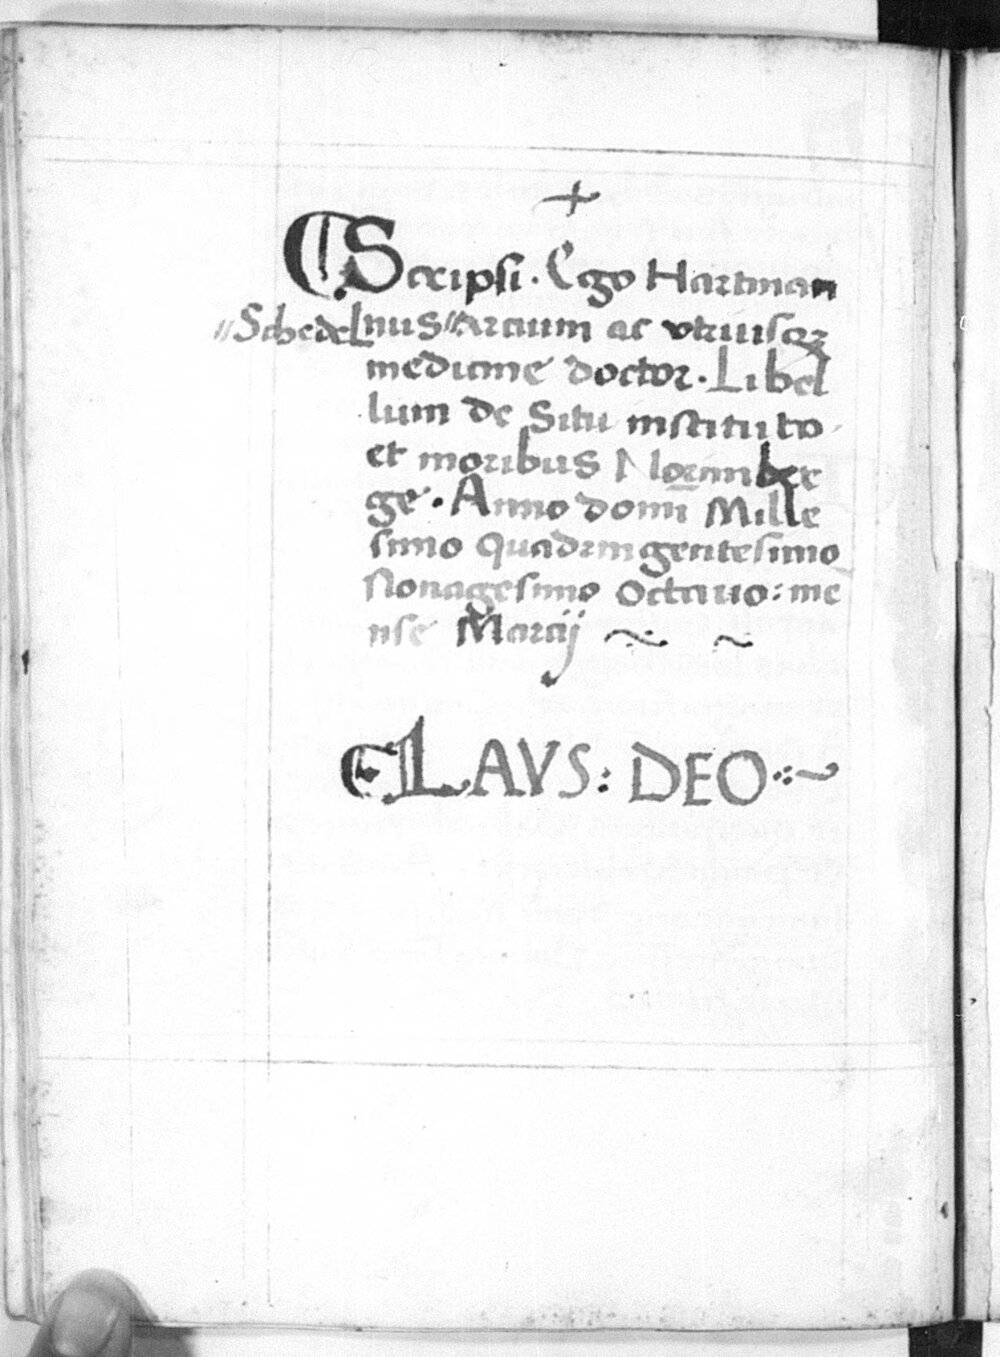 Scripsi. Ego Hartman
"Schedel nus" Arcium ac vtriusqȝ
medicine doctor. Libel
lum de Situ instituto
et moribus Norimber
ge. Anno domī Mille
simo Quadringentesimo
Nonagesimo Octauo: me
nse Marcij
LAVS: DEO